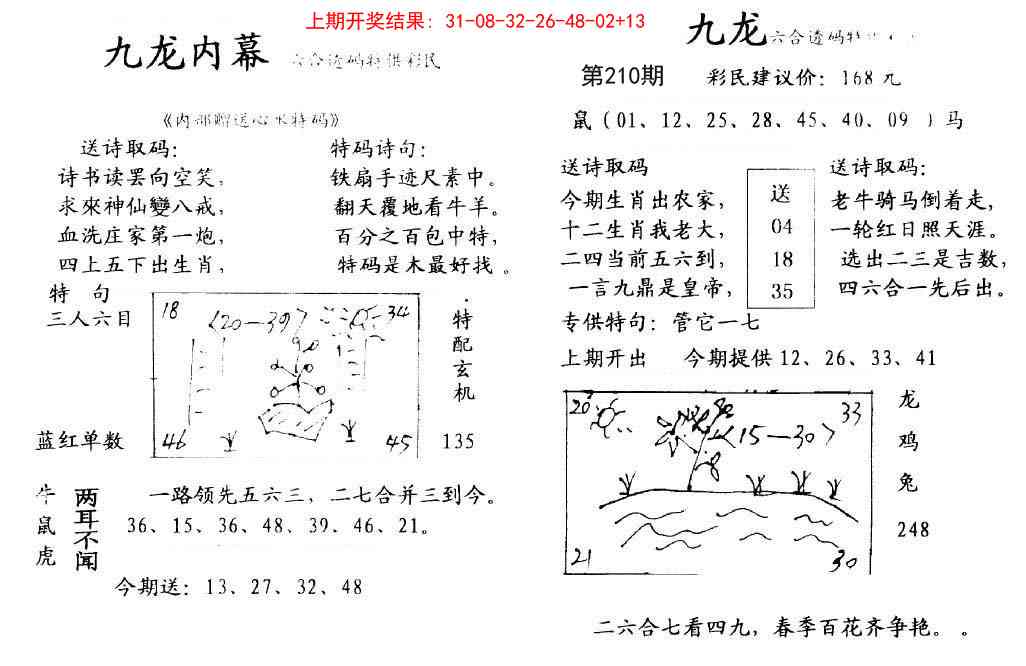 上期开奖结果: 31-08-32-26-48-02+13
九龙内幕 六合透码特供彩民
《内部赠送心水特码》
送诗取码:
诗书读罢向空笑,
求來神仙變八戒,
血洗庄家第一炮,
四上五下出生肖,
特码诗句:
铁扇手迹尺素中。
翻天覆地看牛羊。
百分之百包中特,
特码是木最好找。
特 句
三人六目
蓝红单数
18 <20—39> 34
46 45
特配玄机
135
牛鼠虎
两耳不闻
一路领先五六三, 二七合并三到今。
36、15、36、48、39、46、21。
今期送: 13、27、32、48
九龙 六合透码特
第210期 彩民建议价: 168 元
鼠 (01、12、25、28、45、40、09 ) 马
送诗取码
今期生肖出农家,
十二生肖我老大,
二四当前五六到,
一言九鼎是皇帝,
送
04
18
35
送诗取码:
老牛骑马倒着走,
一轮红日照天涯。
选出二三是吉数,
四六合一先后出。
专供特句: 管它一七
上期开出 今期提供 12、26、33、41
20 33
<15—30>
21 30
龙
鸡
兔
248
二六合七看四九, 春季百花齐争艳。 。